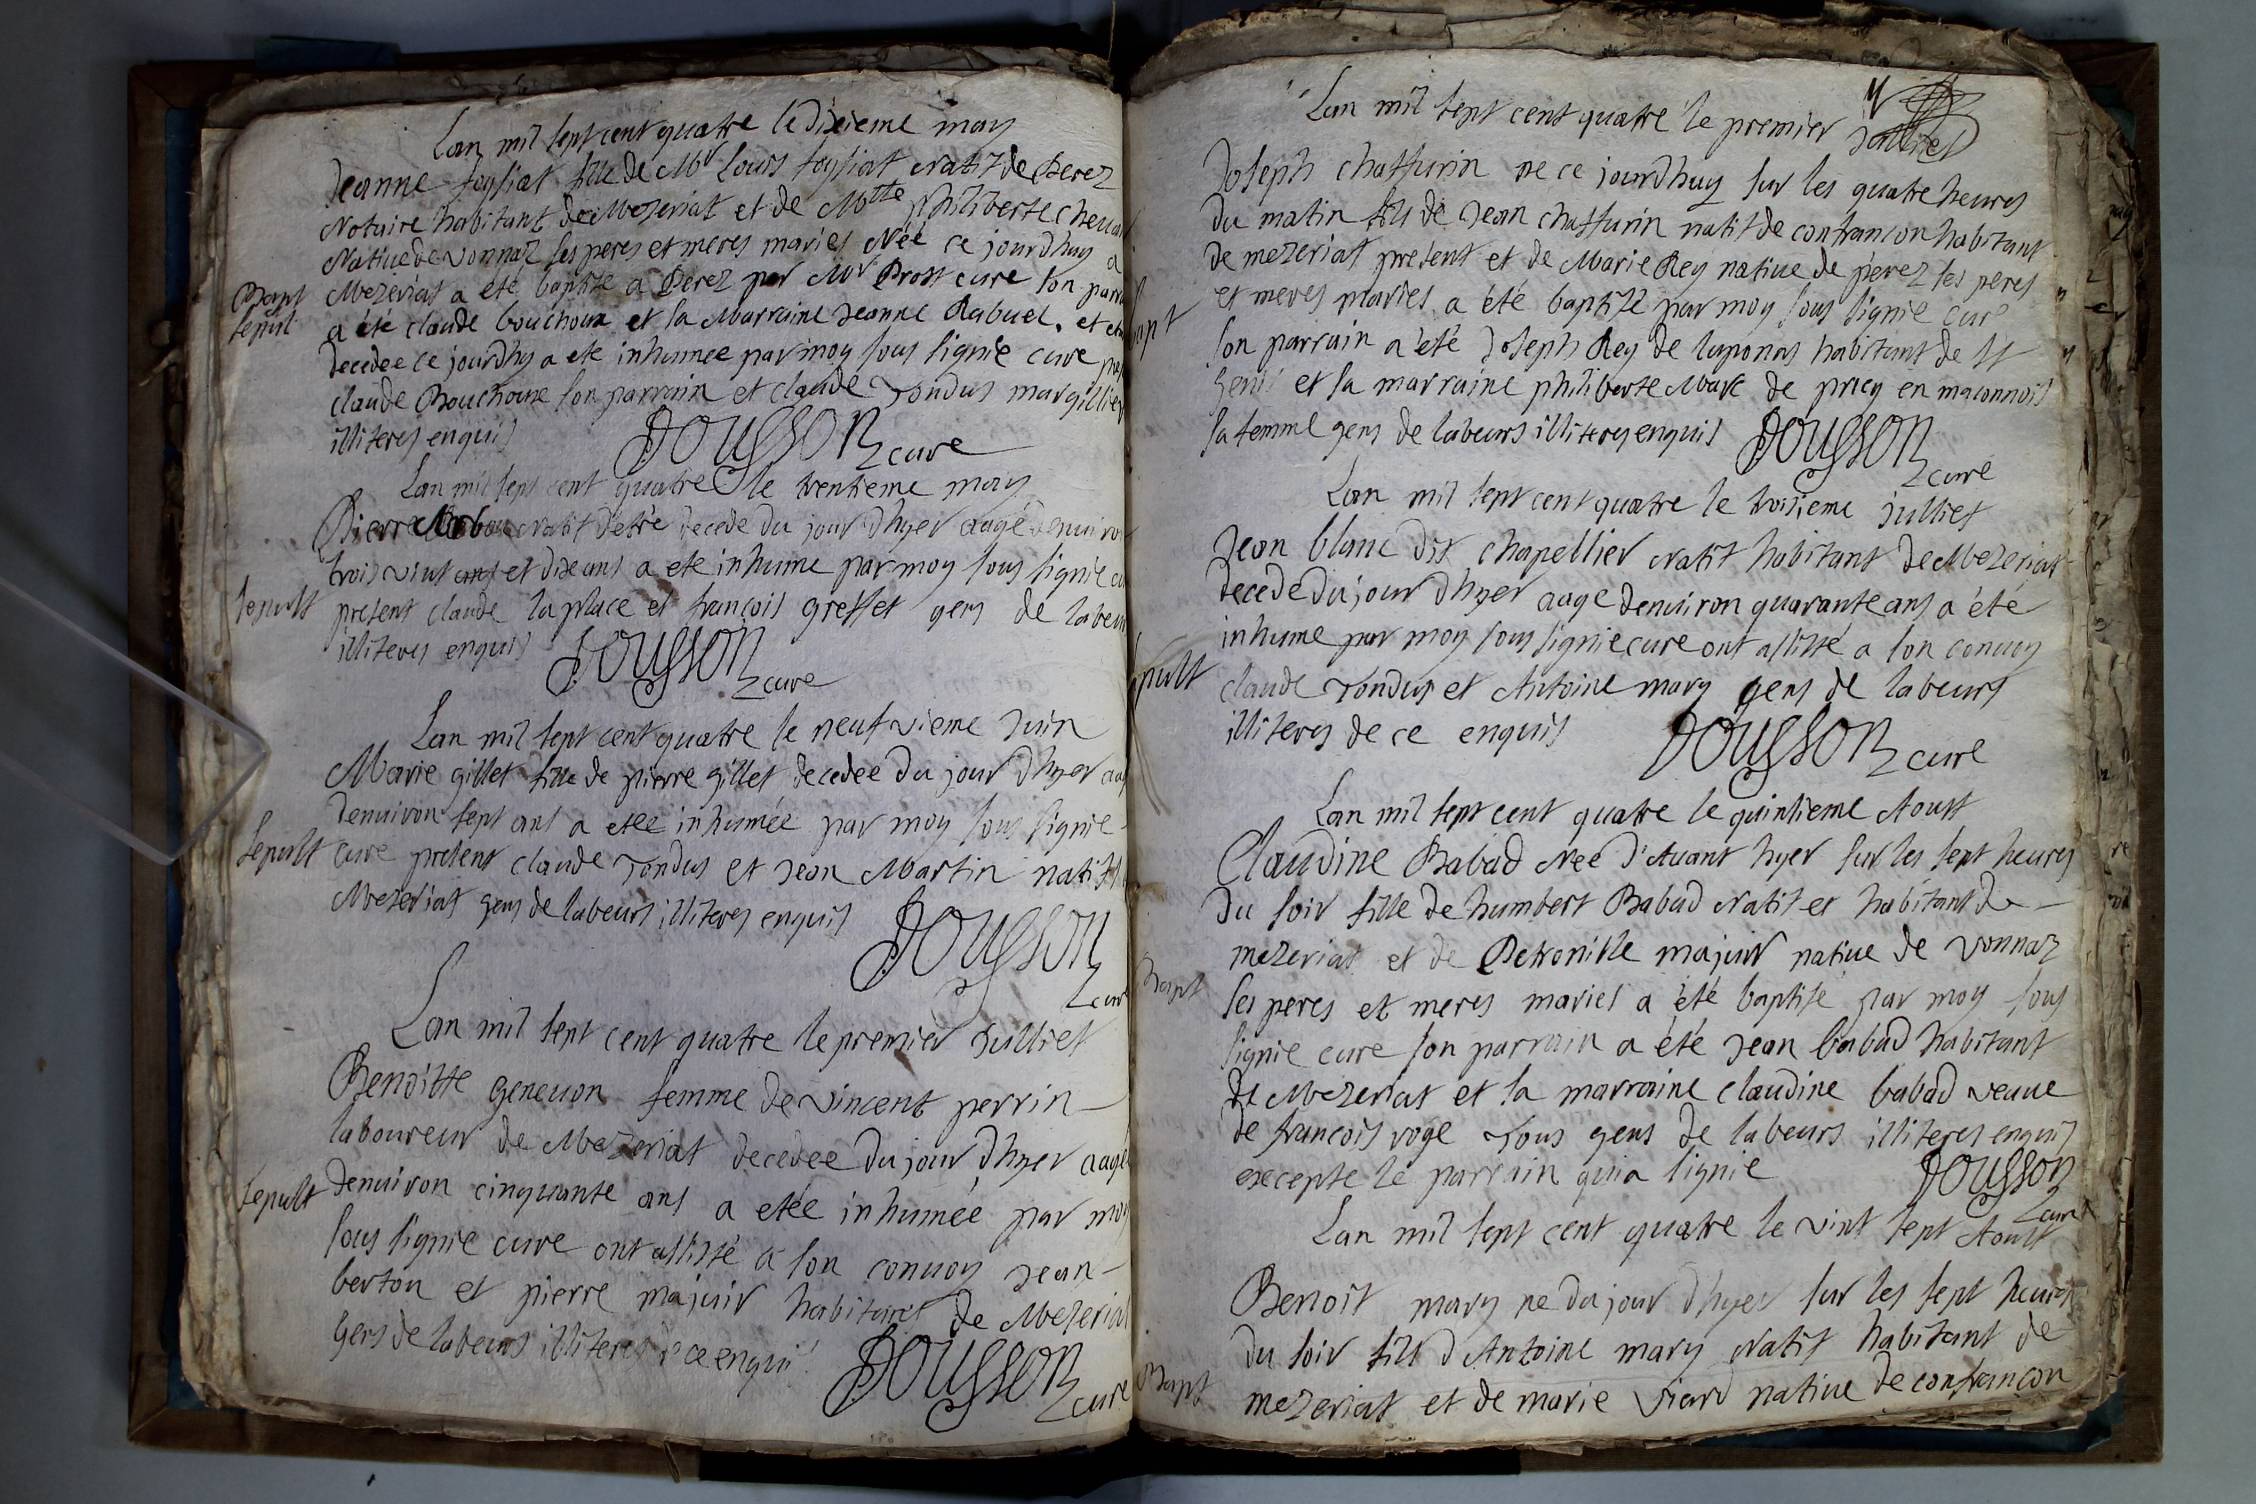 Lan mil sept cent quatre le dixieme may
Jeanne foysiat fille de Mr Louis foysiat natif de Perez
Notaire habitant de Mezeriat et de Mtte philiberte
Natiue de vonnaz ses peres et meres mariés Née ce jourdhuy a
Bapt
sepult
Mezeriat a été baptise a Perez par Mr Brost cure son parra
a été claude bouchoux et la Marraine Jeanne Rabuel. et
decedee ce jourdhuy a ete inhumee par moy sous signie cure
claude Bouchoux son parrain et claude Tondus margillier
illiteres enquis Dousson cure
Lan mil sept cent quatre le trentieme may
Pierre natif detre decede du jour dhyer aagé denuiron
trois vint ans et dix ans a ete inhume par moy sous signie
sepult
present claude laplace et francois greffet gens de labeur
illiteres enquis Dousson cure
Lan mil sept cent quatre le neufvieme Juin
Marie gillet fille de pierre gillet decedee du jour dhyer
denuiron sept ans a etée inhumée par moy sous signie
sepult
cure present claude Tondus et Jean Martin natifs
Mezeriat gens de labeurs illiteres enquis Dousson
cure
Lan mil sept cent quatre le premier Julliet
Benoitte geneuon femme de vincent perrin
laboureur de Mezeriat decedee du jour dhyer aagé
sepult
denuiron cinquante ans a etée inhumée par moy
sous signie cure ont assisté a son conuoy Jean
berton et pierre majuir habitans de Mezeriat
gens de labeurs illiteres de ce enquis Dousson
cure
Lan mil sept cent quatre le premier Julliet
Joseph chaffurin ne ce jourdhuy sur les quatre heures
du matin fils de Jean chaffurin natif de confrancon habitant
de mezeriat present et de Marie Rey natiue de perez ses peres
et meres mariés a été baptisé par moy sous signie curé
Bapt
son parrain a été Joseph Rey de luponas habitant de St
Genis et sa marraine philiberte Marc de pricy en maconnois
sa femme gens de labeurs illiteres enquis Dousson
cure
Lan mil sept cent quatre le troisieme Julliet
Jean blanc dit chapellier natif habitant de Mezeriat
decede du jour dhyer aage denuiron quarante ans a été
inhume par moy sous signie cure ont assisté a son conuoy
sepult
claude Tondus et Antoine mary gens de labeurs
illiteres de ce enquis Dousson cure
Lan mil sept cent quatre le quintieme Aoust
Claudine Babad Née d'Auant hyer sur les sept heures
du soir fille de humbert Babad natif et habitant de
mezeriat et de Petronille majuir natiue de vonnaz
Bapt
ses peres et meres mariés a été baptise par moy sous
signie cure son parrain a été Jean babad habitant
de Mezeriat et la marraine claudine babad veuue
de francois roge Tous gens de labeurs illiteres enquis
excepte le parrain qui a signie Dousson
cure
Lan mil sept cent quatre le vint sept Aoust
Benoit mary ne du jour d'hyer sur les sept heures
du soir fils d Antoine mary natif habitant de
Bapt
mezeriat et de marie viard natiue de confrancon